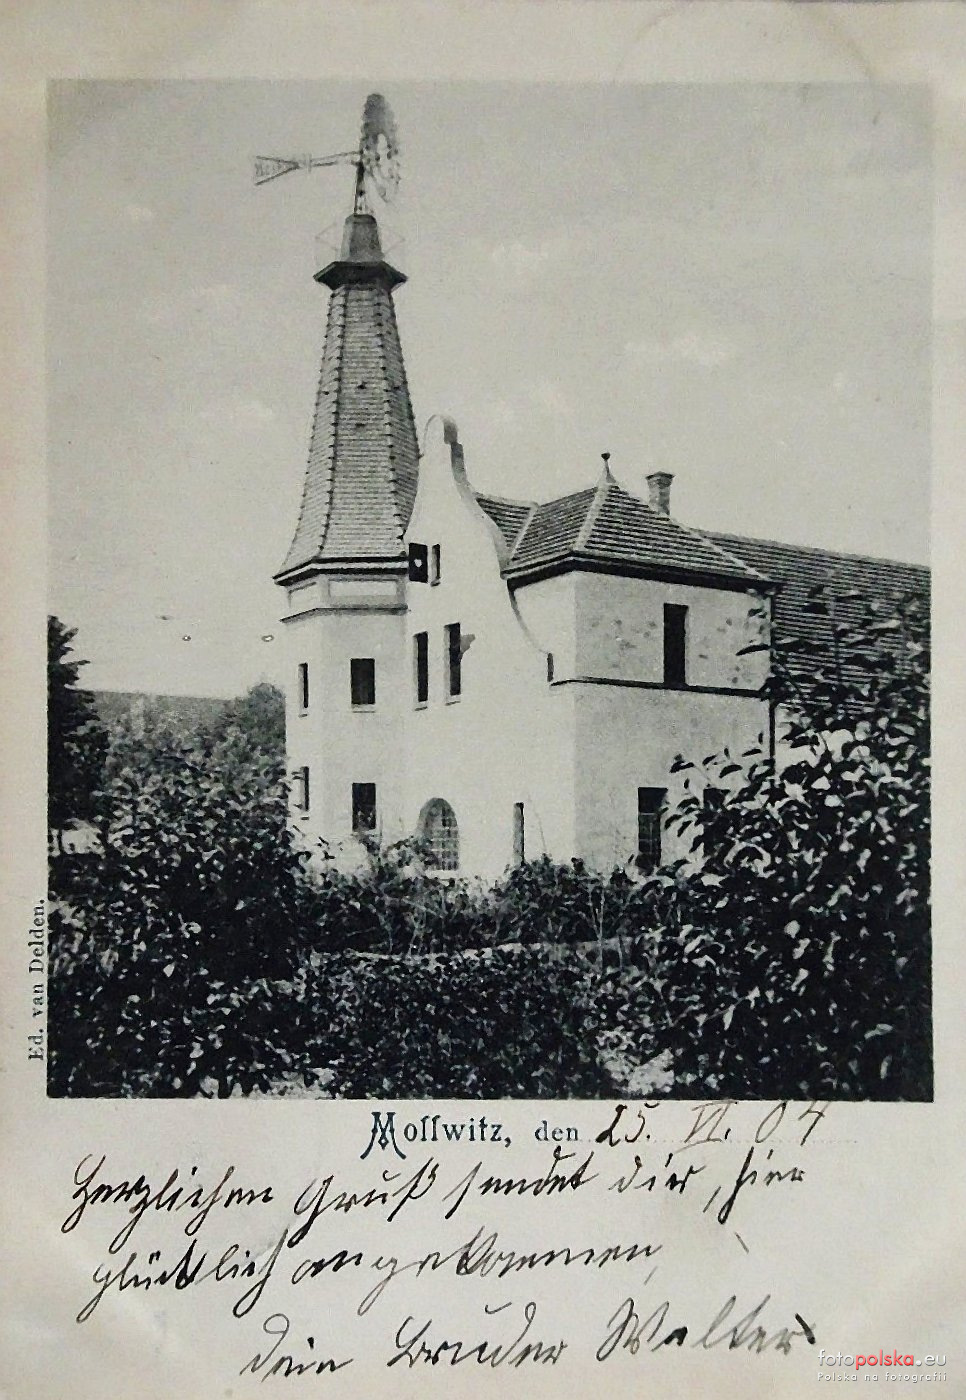 Ed. van Delden.
Mollwitz, den 25. VI. 04
Herzlichen Gruß sendet dir, hier
glücklich angekommen,
dein Bruder Walter
fotopolska.eu
Polska na fotografii